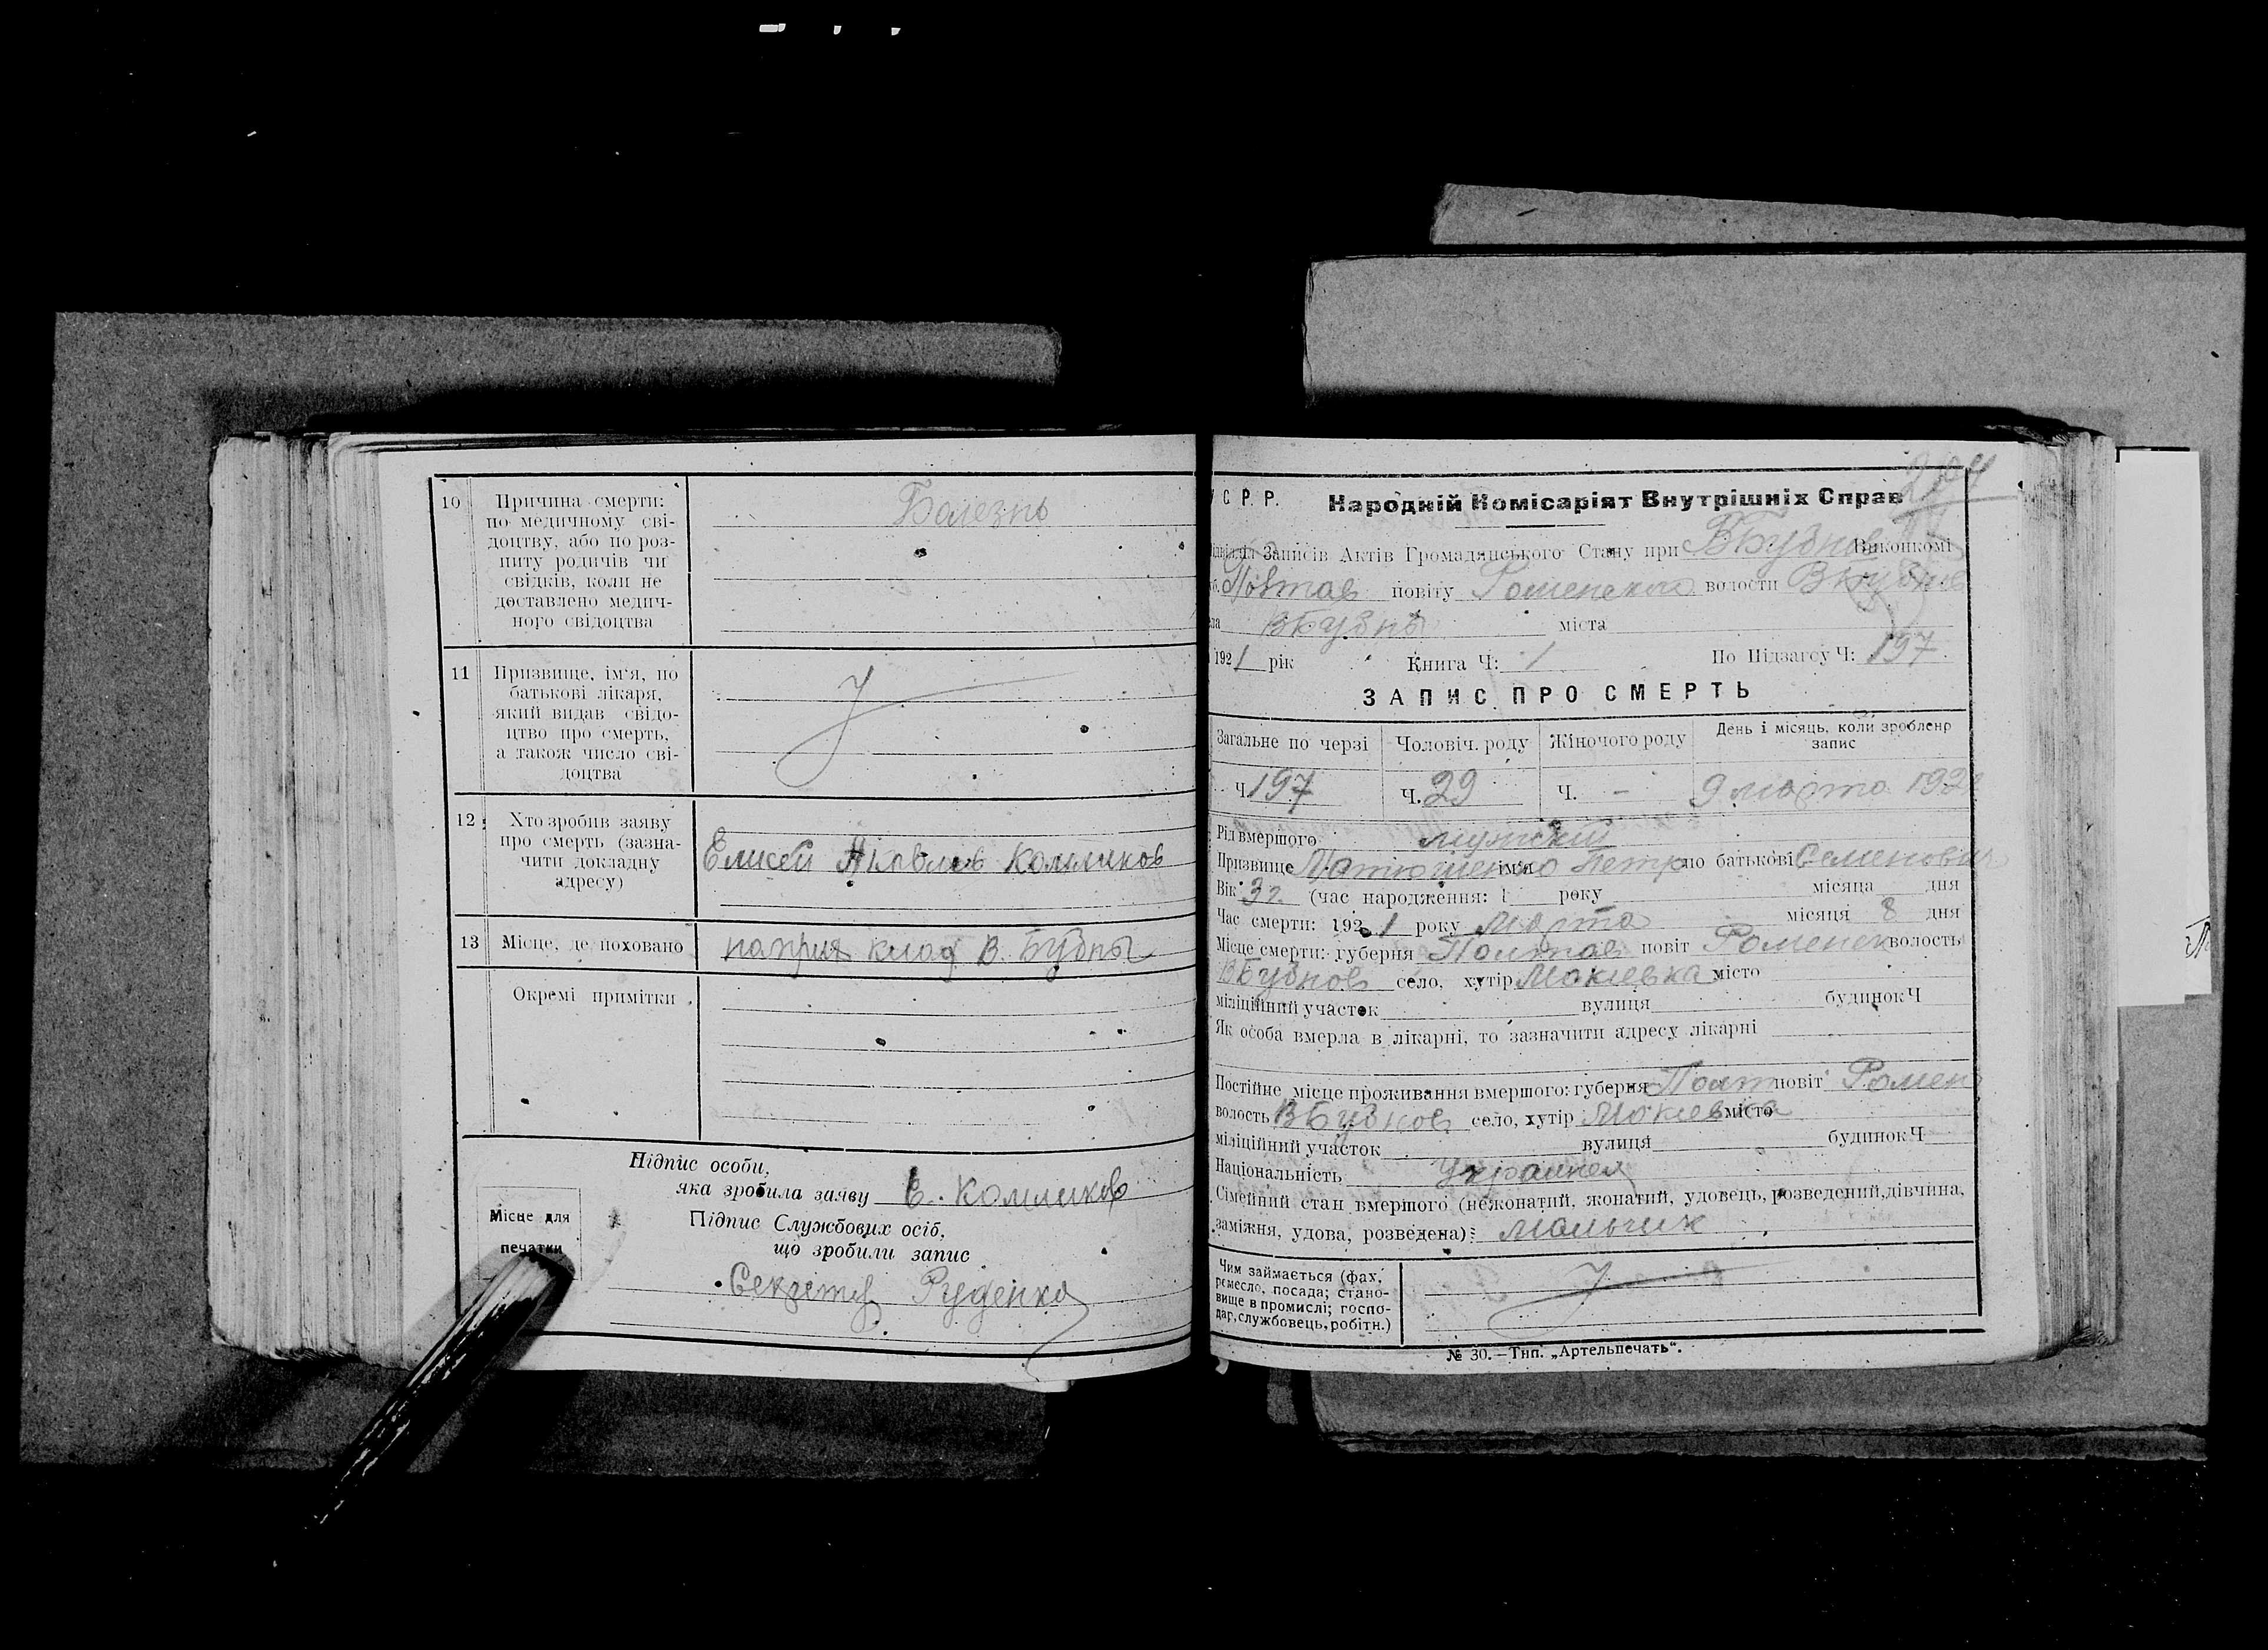 10 Причина смерти: по медичному сві-
доцтву, або по роз-
питу родичів чи
свідків, коли не
доставлено медич-
ного свідоцтва
Болезнь
11 Призвище, ім'я, по
батькові лікаря,
який видав свідо-
цтво про смерть,
а також число сві-
доцтва
12 Хто зробив заяву
про смерть (зазна-
чити докладну
адресу)
Елисей Яковлев Комликов
13 Місце, де поховано
клад В. Бубны
Окремі примітки
Підпис особи,
яка зробила заяву Е. Комликов
Місце для
печатки
Підпис Службових осіб,
що зробили запис
Секретар Руденко
204
У С. Р. Р. Народній Комісаріят Внутрішніх Справ
Записів Актів Громадянського Стану при ВБубнов Виконкомі
Полтав повіту Роменского волости ВБубнов
ла ВБубны міста
192 1 рік Книга Ч: 1 По Підзагсу Ч: 197
ЗАПИС ПРО СМЕРТЬ
Загальне по черзі Чоловіч. роду Жіночого роду День і місяць, коли зроблено
запис
Ч. 197 Ч. 29 Ч. - 9 марта 192
Рід вмершого мужский
Призвище Матюшенко ім'я Петр по батькові Семенович
Вік 3 г. (час народження: 1 року місяця дня
Час смерти: 192 1 року марта місяця 8 дня
Місце смерти: губерня Полтав повіт Роменск волость
ВБубнов село, хутір Мокіевка місто
міліційний участок вулиця будинок Ч
Як особа вмерла в лікарні, то зазначити адресу лікарні
Постійне місце проживання вмершого: губерня Полт повіт Ромен
волость ВБубнов село, хутір Мокіевка місто
міліційний участок вулиця будинок Ч
Національність
Сімейний стан вмершого (нежонатий, жонатий, удовець, розведений, дівчина,
заміжня, удова, розведена): мальчик
Чим займається (фах,
ремесло, посада; стано-
вище в промислі; госпо-
дар, службовець, робітн.)
№ 30.—Тип. „Артельпечать".